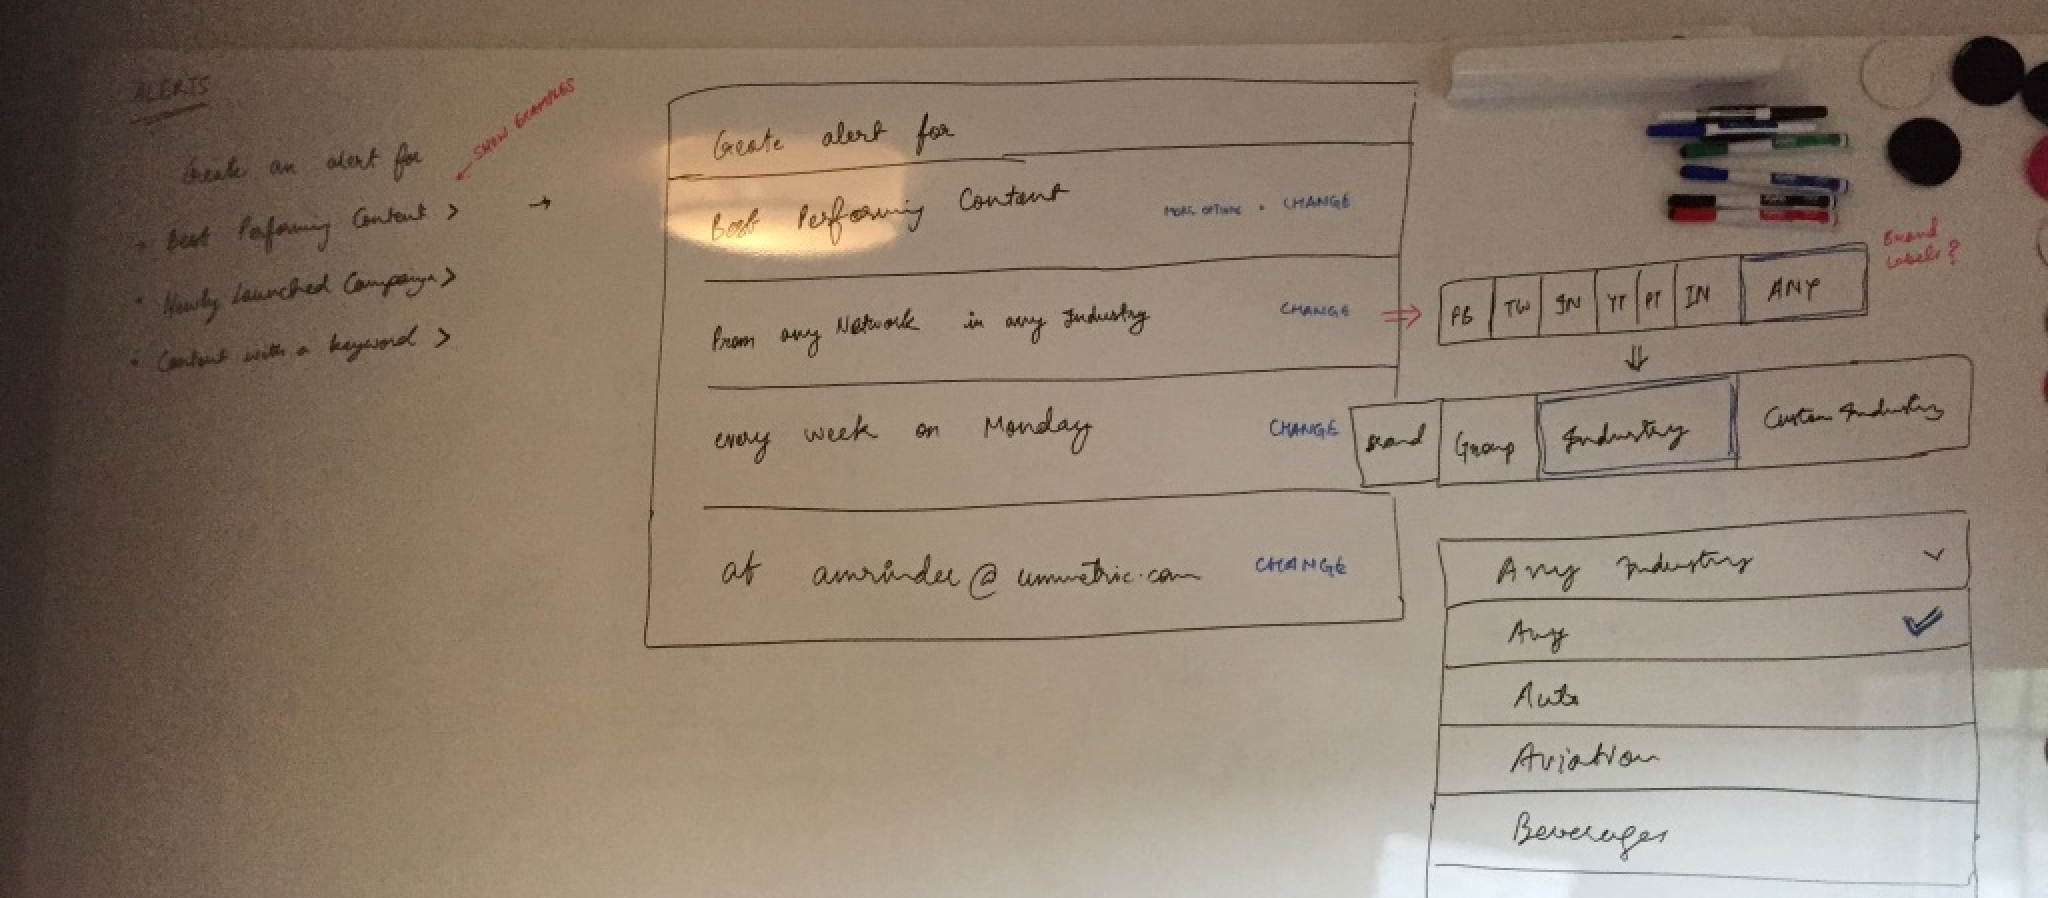 ALERTS
Create an alert for
SHOW EXAMPLES
• Best Performing Content >
• Newly Launched Campaign >
• Content with a keyword >
Create alert for
Best Performing Content MORE OPTIONS • CHANGE
From any Network in any Industry CHANGE
every week on Monday CHANGE
at amrinder@unmetric.com CHANGE
FB TW IN YT PT IN ANY
Brand Labels?
Brand Group Industry Custom Industry
Any Industry
Any
Auto
Aviation
Beverages